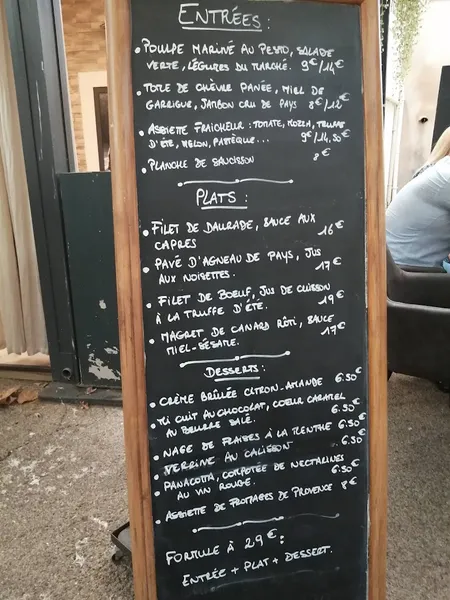 ENTRÉES :
• POULPE MARINÉ AU PESTO, SALADE
VERTE, LÉGUMES DU MARCHÉ. 9€/14€
• TOTE DE CHÈVRE PANÉE, MIEL DE
GARRIGUE, JAMBON CRU DE PAYS 8€/12€
• ASSIETTE FRAICHEUR : TOMATE, MOZZA, TRUFFES
D'ÉTÉ, MELON, PASTÈQUE... 9€/14,50€
• PLANCHE DE SAUCISSON 8€
PLATS :
• FILET DE DAURADE, SAUCE AUX
CAPRES 16€
• PAVÉ D'AGNEAU DE PAYS, JUS
AUX NOISETTES. 17€
• FILET DE BOEUF, JUS DE CUISSON
À LA TRUFFE D'ÉTÉ. 19€
• MAGRET DE CANARD RÔTI, SAUCE
MIEL-SÉSAME. 17€
DESSERTS :
• CRÈME BRÛLÉE CITRON-AMANDE 6.50€
• MI CUIT AU CHOCOLAT, COEUR CARAMEL
AU BEURRE SALÉ. 6.50€
• NAGE DE FRAISES À LA MENTHE 6.50€
• VERRINE AU CALISSON 6.50€
• PANACOTTA, COMPOTÉE DE NECTARINES
AU VIN ROUGE. 6.50€
• ASSIETTE DE FROMAGES DE PROVENCE 8€
FORMULE À 29€ :
ENTRÉE + PLAT + DESSERT.